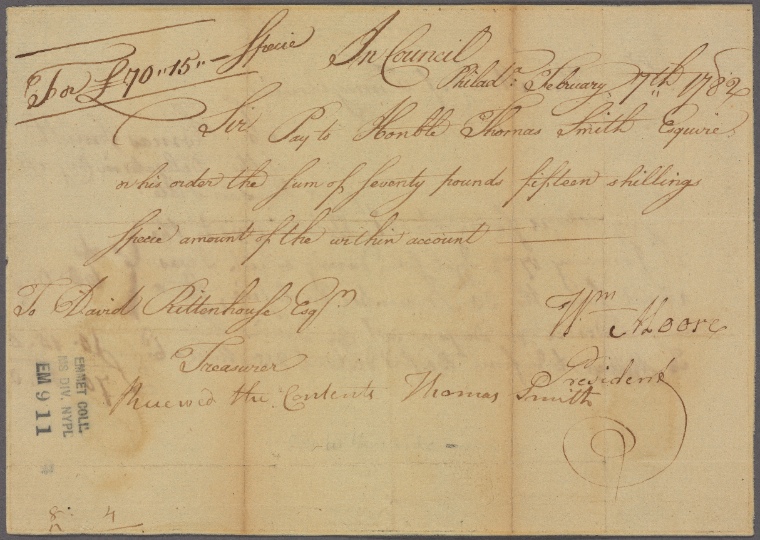 For £70"15"– Specie
In Council
Philada. February 7th 1782
Sir Pay to Honble Thomas Smith Esquire
or his order the sum of seventy pounds fifteen shillings
Specie amount of the within account
To David Rittenhouse Esqr.
Wm Moore
Treasurer
President
Received the Contents Thomas Smith
EMMET COLL.
MS DIV. NYPL
EM 911
8. 4